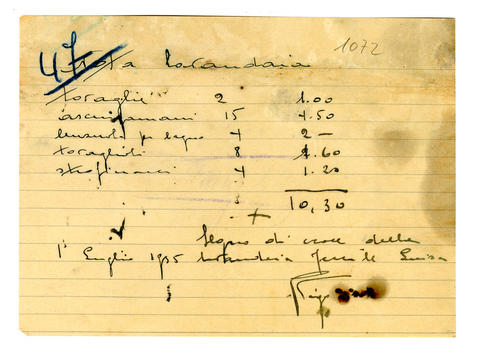 1072
47
Nota lavandaia
tovaglie 2 1.00
asciugamani 15 4.50
lenzuola per bagno 4 2 —
tovaglioli 8 1.60
strofinacci 4 1.20
10,30
+
Segno di croce della
1° Luglio 1905 lavandaia Luisa